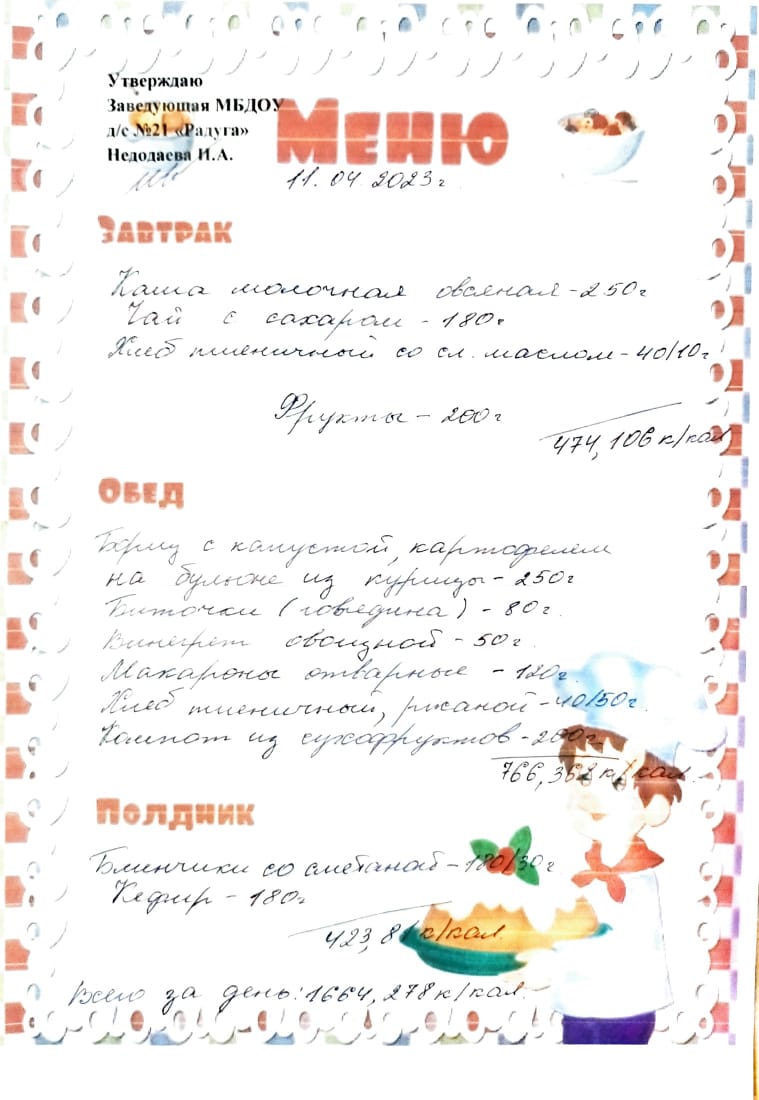 Утверждаю
Заведующая МБДОУ
д/с №21 «Радуга»
Недодаева И.А.
Меню
11.04.2023г.
Завтрак
Каша молочная овсяная - 250г
Чай с сахаром - 180г
Хлеб пшеничный со сл. маслом - 40/10г
Фрукты - 200г
474,106 к/кал
Обед
Борщ с капустой, картофелем
на бульоне из курицы - 250г
Биточки (говядина) - 80г.
Винегрет овощной - 50г.
Макароны отварные - 120г.
Хлеб пшеничный, ржаной - 40/50г.
Компот из сухофруктов - 200г.
766,362 к/кал.
Полдник
Блинчики со сметаной - 180/30г
Кефир - 180г
423,81 к/кал.
Всего за день: 1664,278 к/кал.